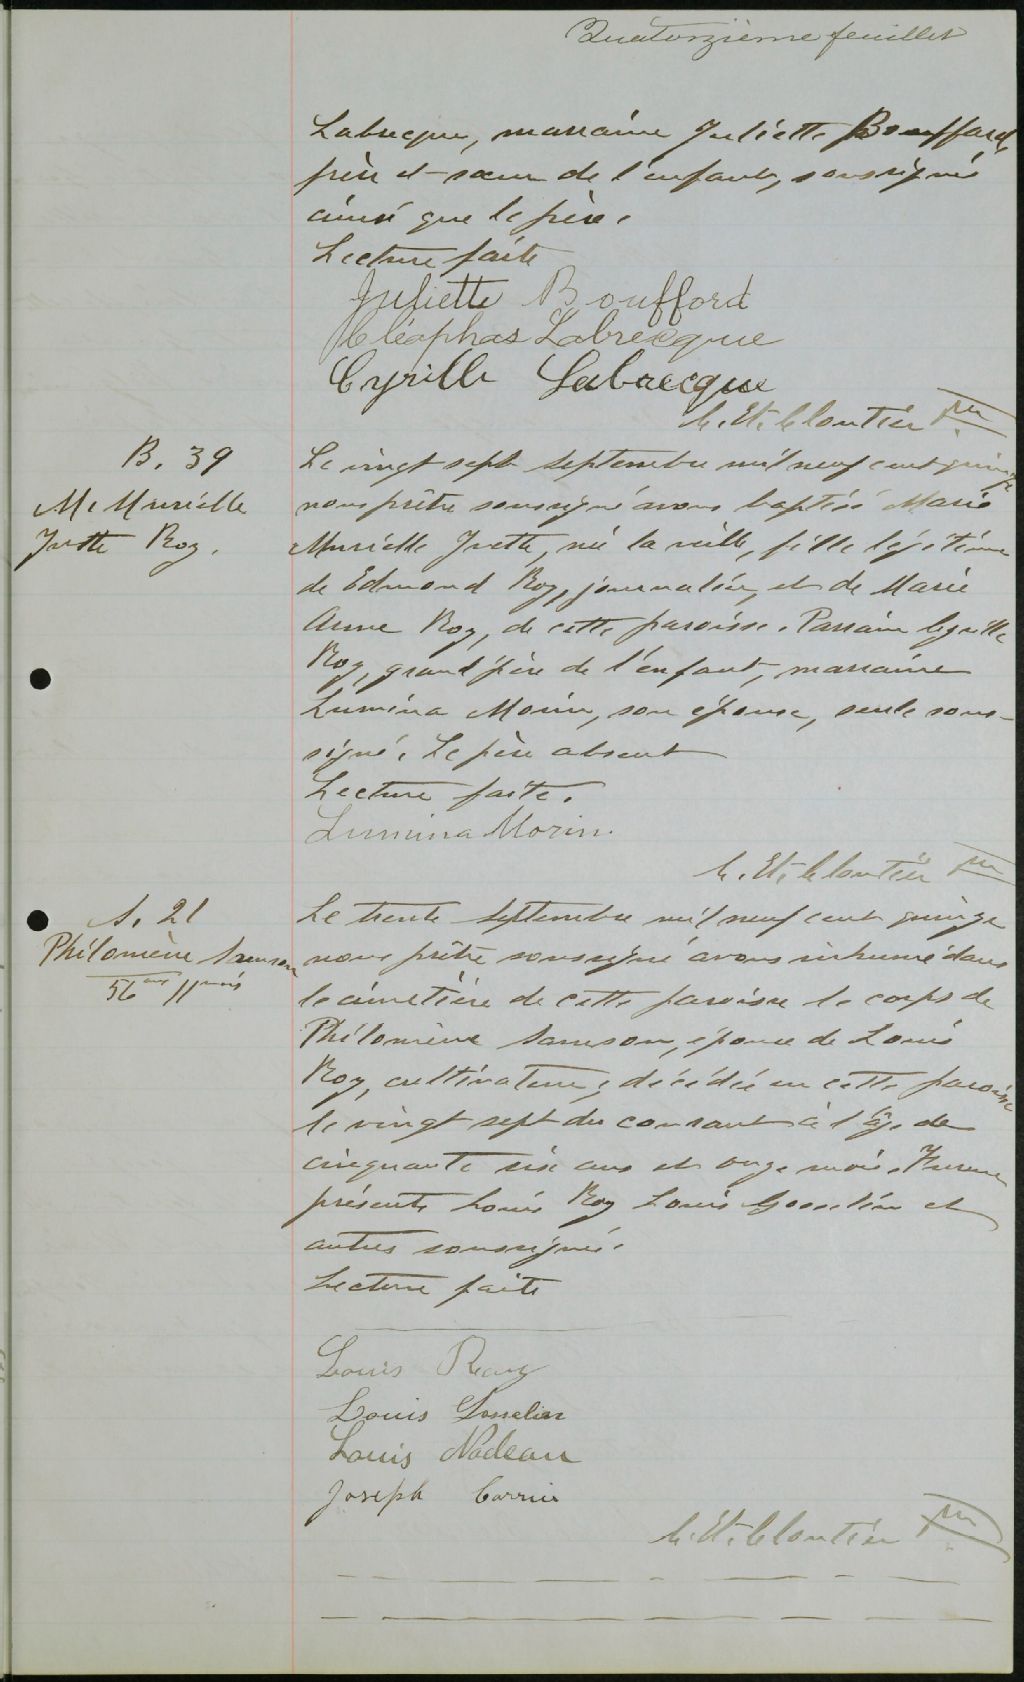 Quatorzième feuillet
Labrecque, marraine Juliette Bouffard,
frère et soeur de l'enfant, soussignés
ainsi que le père.
Lecture faite
Juliette Boufford
Cléophas Labrecque
Cyrille Labrecque
C. Et. Cloutier ptre
B. 39
M. Murielle
Yvette Roy.
Le vingt sept septembre mil neuf cent quinze
nous prêtre soussigné avons baptisé Marie
Murielle Yvette, née la veille, fille légitime
de Edmond Roy, journalier, et de Marie
Anne Roy, de cette paroisse. Parrain Cyrille
Roy, grand'père de l'enfant, marraine
Lumina Morin, son épouse, seule sous-
signé. Le père absent
Lecture faite.
Lumina Morin.
C. Et. Cloutier ptre
S. 21
Philomène Samson
56 ans 11 mois
Le trente septembre mil neuf cent quinze
nous prêtre soussigné avons inhumé dans
le cimetière de cette paroisse le corps de
Philomène Samson, épouse de Louis
Roy, cultivateur, décédée en cette paroisse
le vingt sept du courant à l'âge de
cinquante six ans et onze mois. Furent
présents Louis Roy Louis Gosselin et
autres soussignés.
Lecture faite
Louis Roy
Louis Gosselin
Louis Nadeau
Joseph Carrier
C. Et. Cloutier ptre